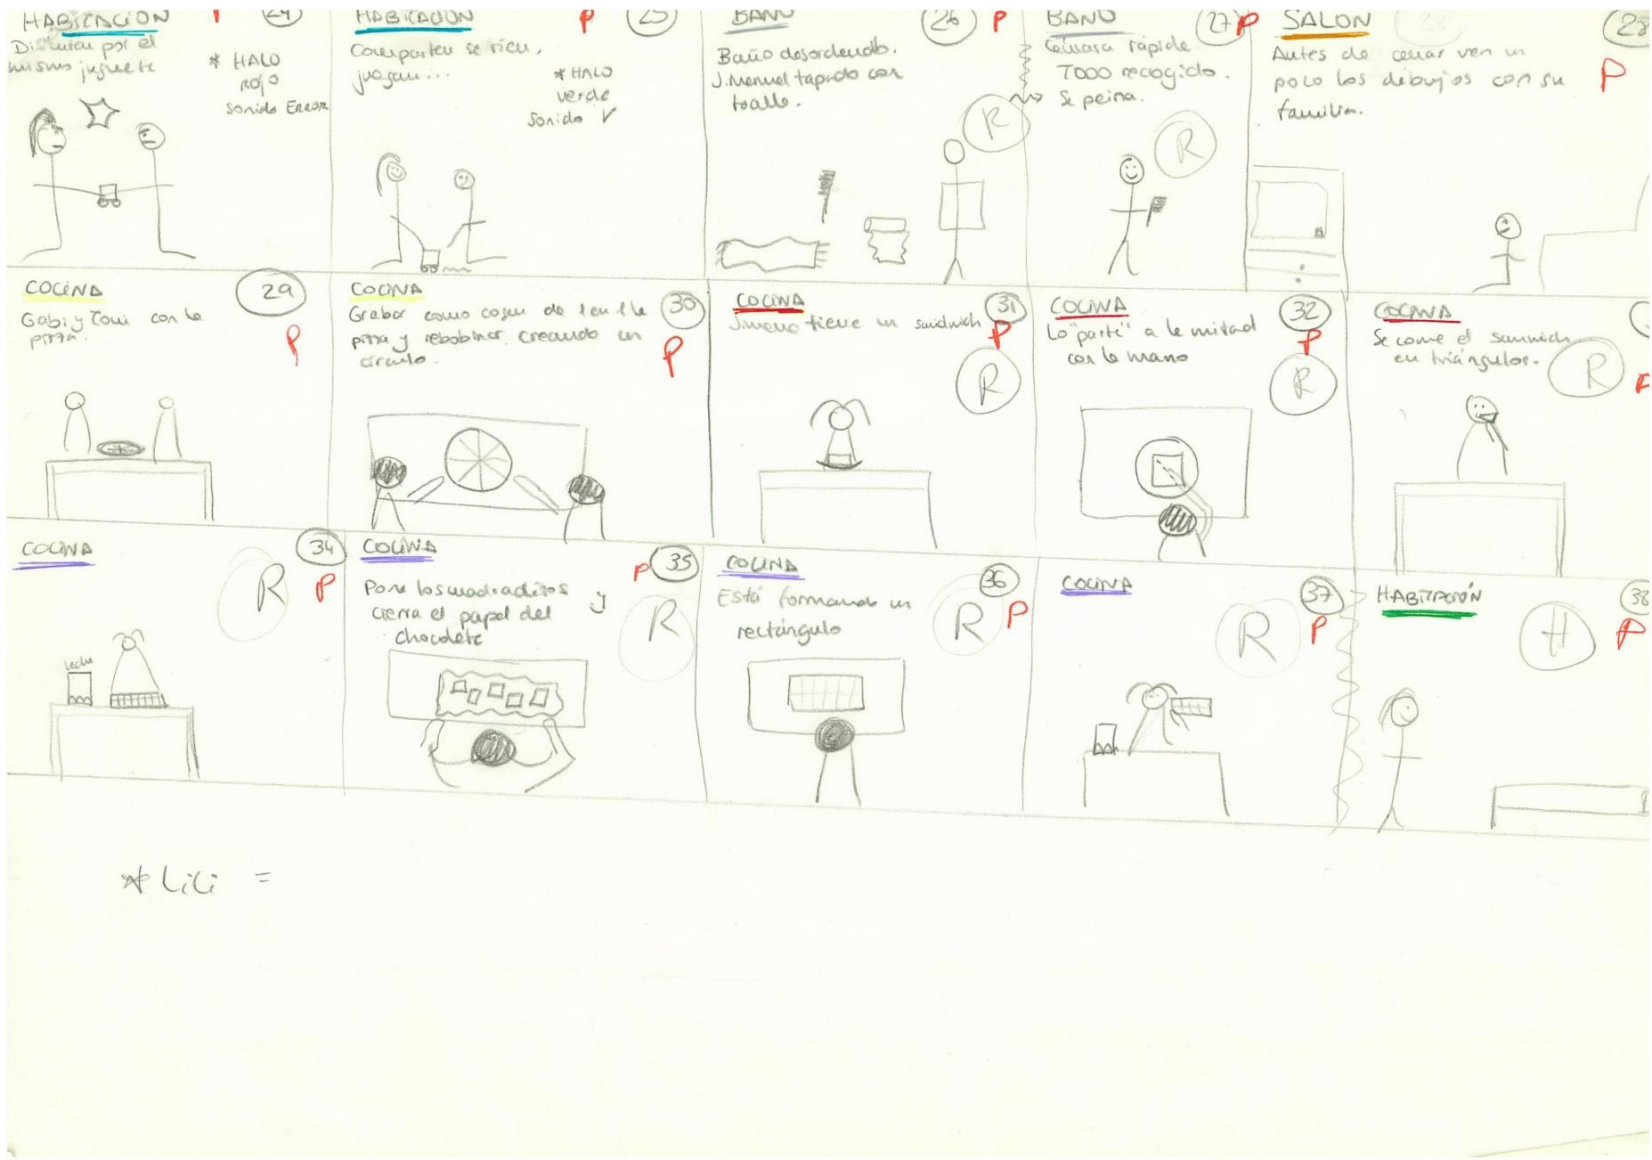 HABITACIÓN
24
Discuten por el
mismo juguete
* HALO
ROJO
Sonido ERROR
HABITACION
P
25
Comparten se rien,
juegan...
* HALO
verde
Sonido ✓
BAÑO
26
P
Baño desordenado.
J.Manuel tapado con
toalla.
R
BAÑO
27
P
Cámara rápida
TODO recogido.
Se peina.
R
SALON
28
Antes de cenar ven un
poco los dibujos con su
familia.
P
COCINA
29
Gabi y Toni con la
pizza.
P
COCINA
30
Grabar como cogen de 1 en 1 la
pizza y rebobinar creando un
círculo.
P
COCINA
31
Jimena tiene un sandwich
P
R
COCINA
32
Lo "parte" a la mitad
con la mano
P
R
COCINA
Se come el sanwich
en triángulos.
R
P
COCINA
34
R
P
leche
COCINA
P
35
Pone los cuadraditos y
cierra el papel del
chocolate
R
COCINA
36
Está formando un
rectángulo
R
P
COCINA
37
R
P
HABITACIÓN
38
H
P
* Lili =